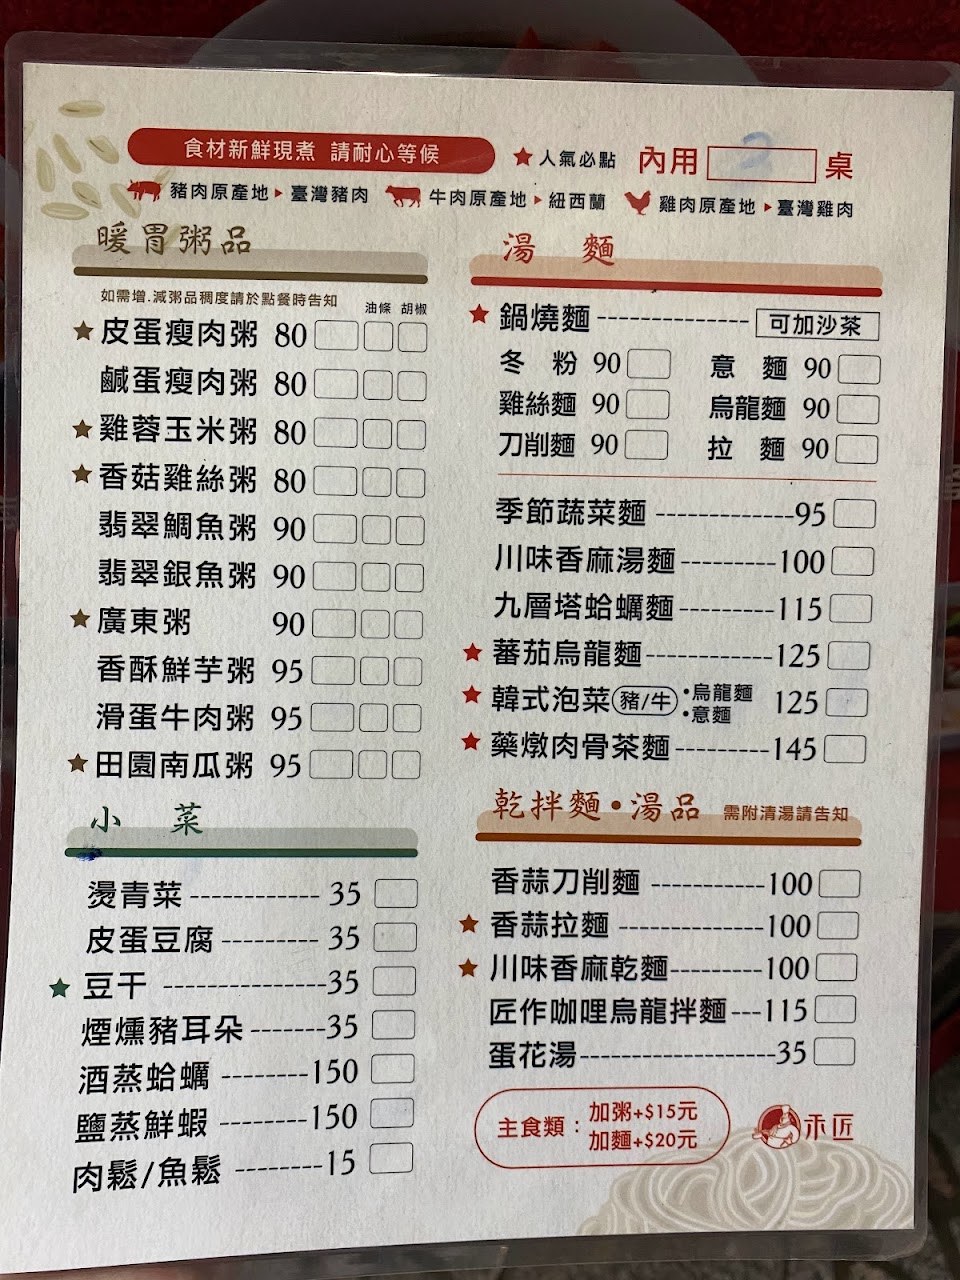 食材新鮮現煮 請耐心等候 ★人氣必點 內用 2 桌
豬肉原產地▶臺灣豬肉 牛肉原產地▶紐西蘭 雞肉原產地▶臺灣雞肉
暖胃粥品
如需增.減粥品稠度請於點餐時告知 油條 胡椒
★皮蛋瘦肉粥 80
鹹蛋瘦肉粥 80
★雞蓉玉米粥 80
★香菇雞絲粥 80
翡翠鯛魚粥 90
翡翠銀魚粥 90
★廣東粥 90
香酥鮮芋粥 95
滑蛋牛肉粥 95
★田園南瓜粥 95
小 菜
燙青菜 ------------ 35
皮蛋豆腐 --------- 35
★豆干 ---------------35
煙燻豬耳朵 -------35
酒蒸蛤蠣 --------150
鹽蒸鮮蝦 --------150
肉鬆/魚鬆 --------15
湯 麵
★鍋燒麵 -------------- 可加沙茶
冬 粉 90 意 麵 90
雞絲麵 90 烏龍麵 90
刀削麵 90 拉 麵 90
季節蔬菜麵 -------------95
川味香麻湯麵---------100
九層塔蛤蠣麵---------115
★蕃茄烏龍麵------------125
★韓式泡菜(豬/牛) •烏龍麵 •意麵 125
★藥燉肉骨茶麵---------145
乾拌麵•湯品 需附清湯請告知
香蒜刀削麵 -----------100
★香蒜拉麵 --------------100
★川味香麻乾麵---------100
匠作咖哩烏龍拌麵---115
蛋花湯-------------------35
主食類：加粥+$15元
加麵+$20元
禾匠